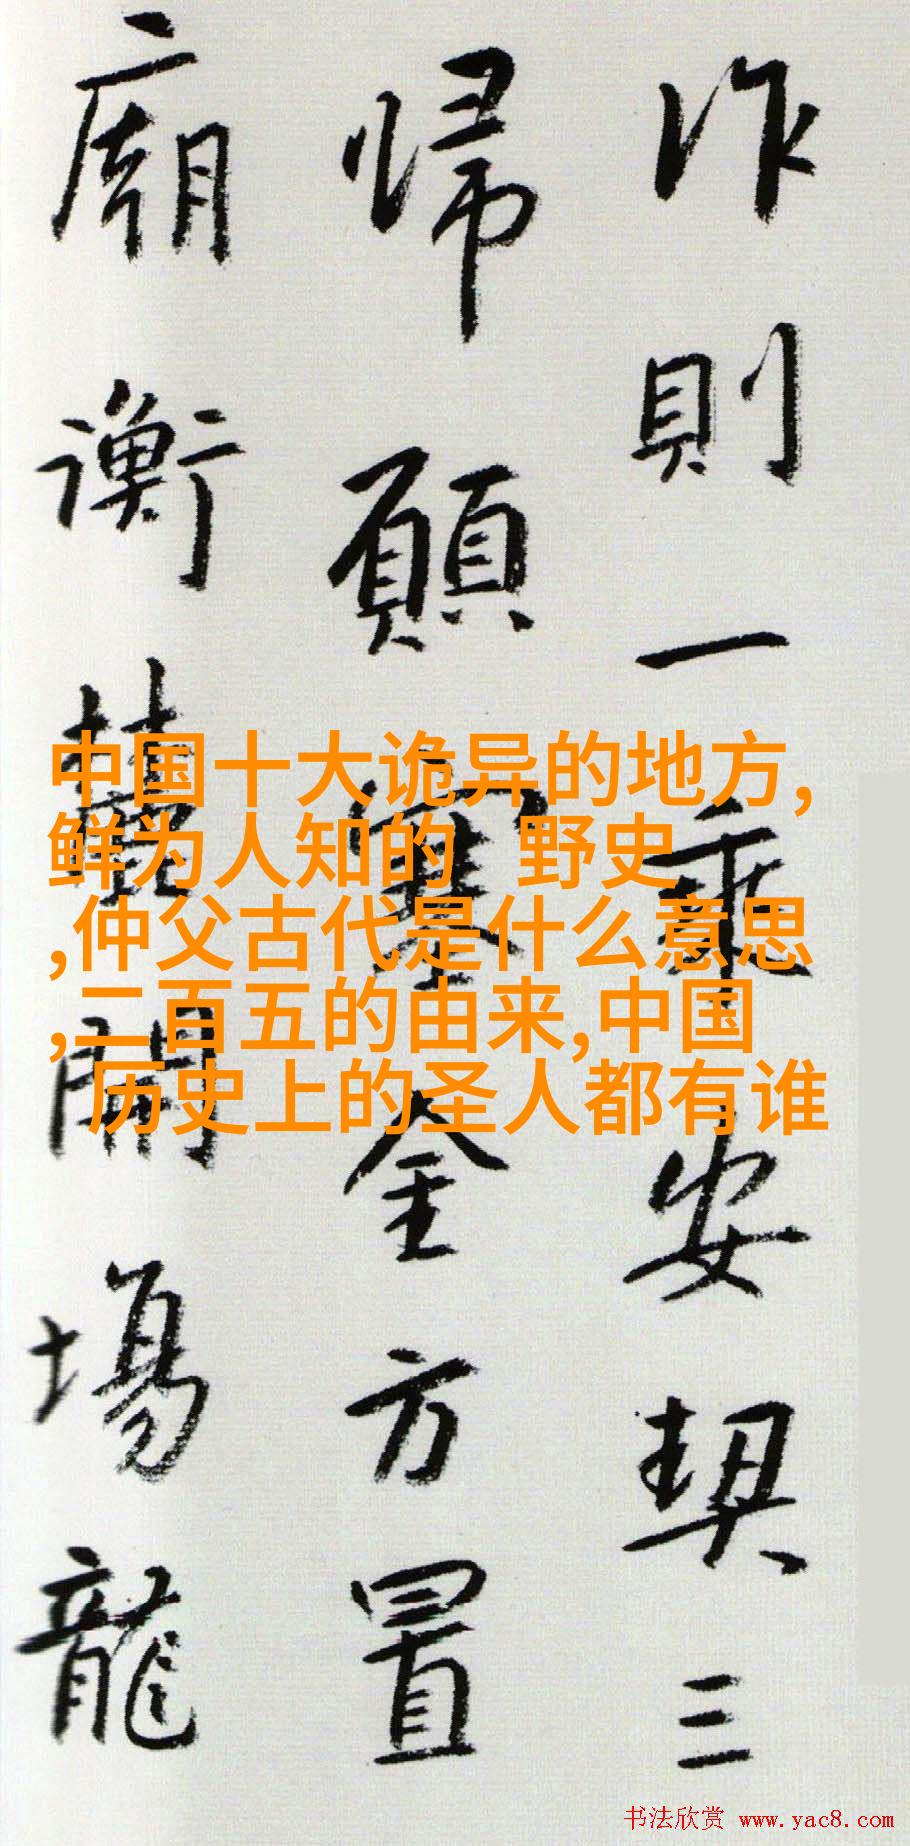 作則一乘安契三
帰願塞金方置
廟衡開場龍
中国十大诡异的地方,
鲜为人知的 野史
,仲父古代是什么意思
,二百五的由来,中国
历史上的圣人都有谁
书法欣赏 www.yac8.com